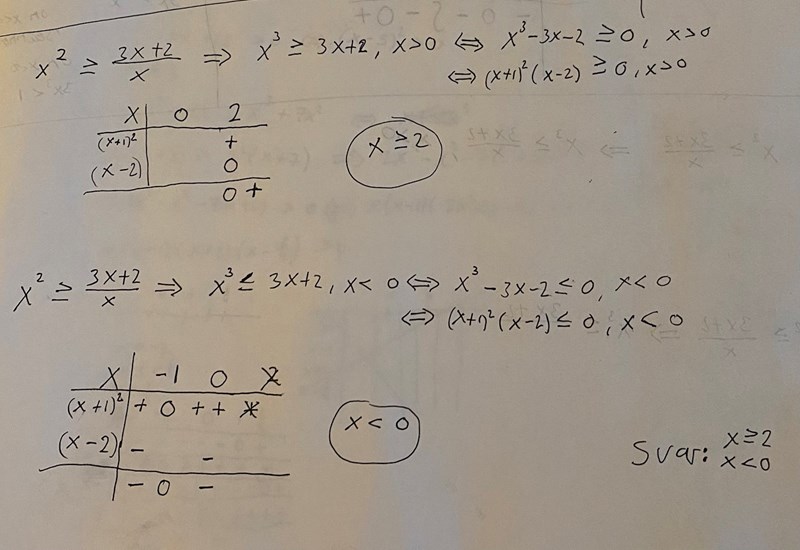 x² ≥ (3x+2)/x ⇒ x³ ≥ 3x+2, x>0 ⇔ x³-3x-2 ≥0, x>0
⇔ (x+1)²(x-2) ≥0, x>0
x 0 2
(x+1)² +
(x-2) 0
0 +
x ≥ 2
x² ≥ (3x+2)/x ⇒ x³ ≤ 3x+2, x< 0 ⇔ x³-3x-2 ≤ 0, x<0
⇔ (x+1)²(x-2) ≤ 0, x< 0
x -1 0
(x+1)² + 0 + +
(x-2) - -
- 0 -
x < 0
Svar: x≥2
x<0